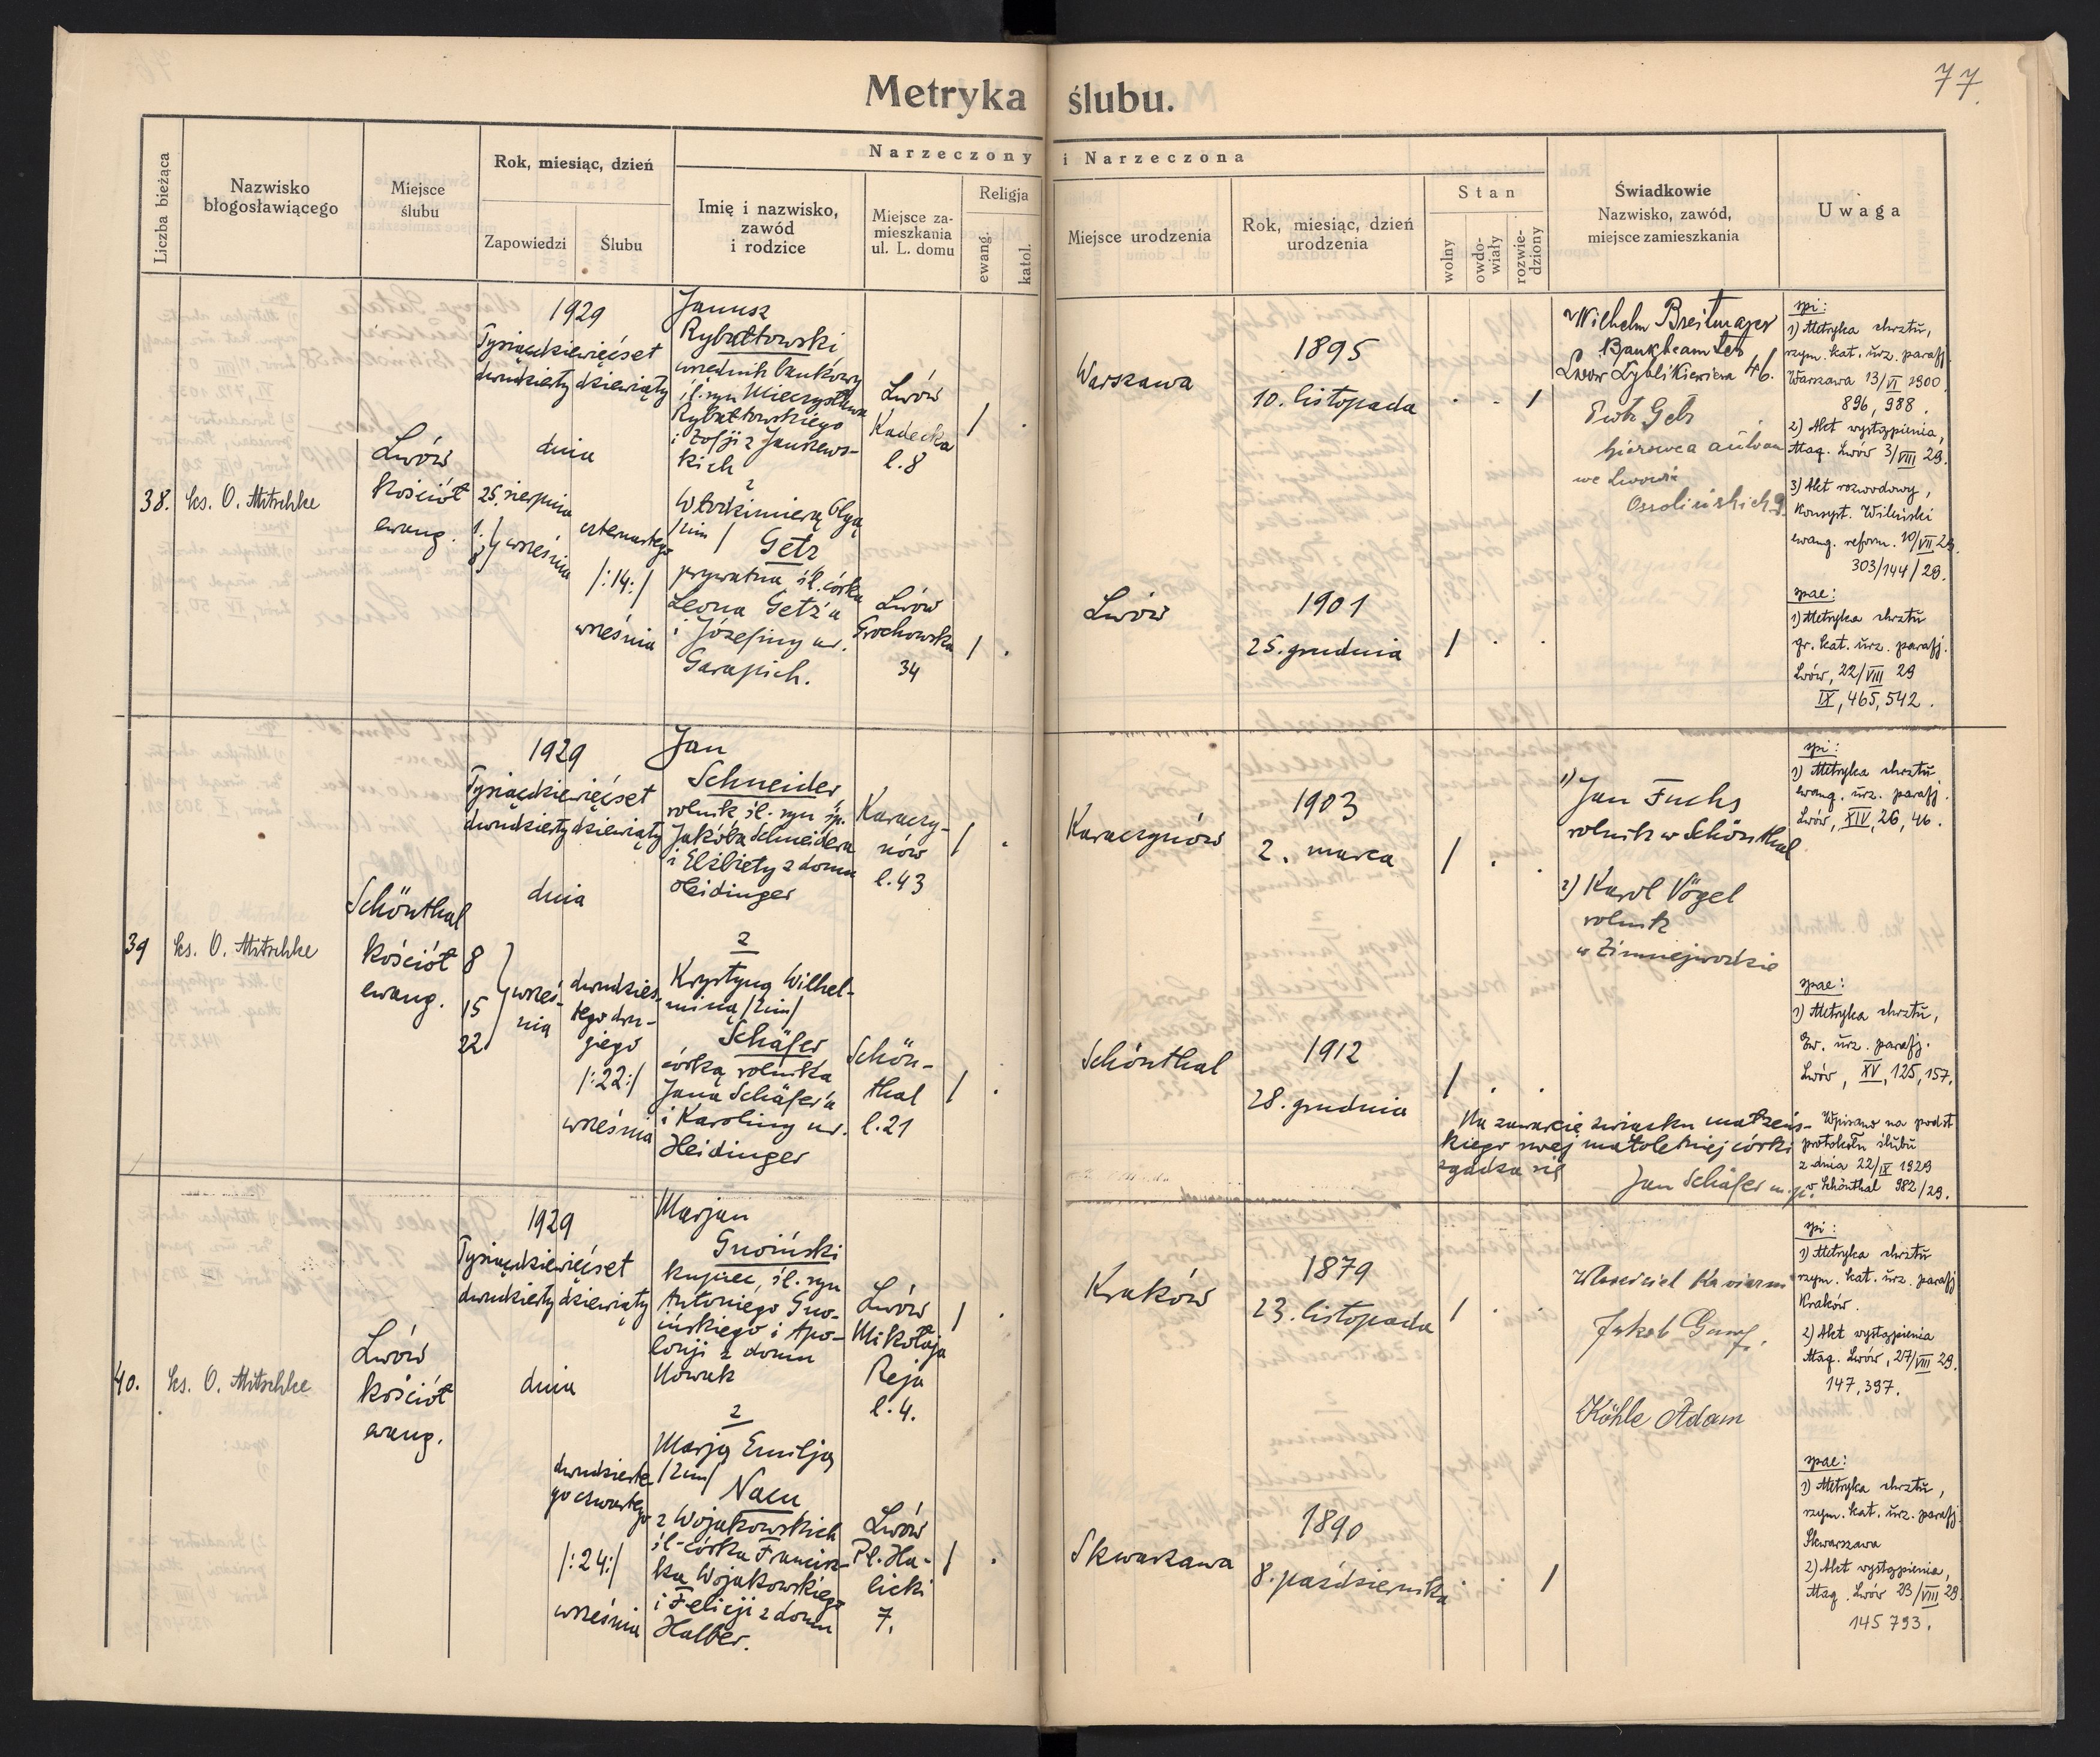 77.
Metryka ślubu.
Liczba bieżąca
Nazwisko
błogosławiącego
Miejsce
ślubu
Rok, miesiąc, dzień
Zapowiedzi
Ślubu
Narzeczony i Narzeczona
Imię i nazwisko,
zawód
i rodzice
Miejsce za-
mieszkania
ul. L. domu
Religja
ewang.
katol.
Miejsce urodzenia
Rok, miesiąc, dzień
urodzenia
Stan
wolny
owdo-
wiały
rozwie-
dziony
Świadkowie
Nazwisko, zawód,
miejsce zamieszkania
Uwaga
38.
ks. O. Mitschke
Lwów
kościół
ewang.
1929
Tysiącdziewięćset
dwudziestydziewiąty
dnia
25. sierpnia
1.
8. } września
czternastego
/:14:/
września
Janusz
Rybałtowski
urzednik bankowy
śl. syn Mieczysława
Rybałtowskiego
i Zofji z Janszews-
kich
z
Włodzimierą Olgą
/2im/
Getz
prywatna śl. córka
Leona Getz'a
i Józefiny ur.
Garapich.
Lwów
Kadecka
l. 8
Lwów
Grochowska
34
Warszawa
1895
10. listopada
Lwów
1901
25. grudnia
Wilhelm Breitmayer
Bankbeamter
Lwów Zyblikiewicza 46.
Piotr Geb
we Lwowie
Ossolińskich 9.
spi:
1) Metryka chrztu,
rzym. kat. urz. parafj.
Warszawa 13/VI 1900.
896, 988.
2) Akt wystąpienia,
Mag. Lwów 3/VIII 29.
3) Akt rozwodowy,
Konsyst. Wileński
ewang. reform. 10/VII 29.
303/144/29.
spae:
1) Metryka chrztu
gr. kat. urz. parafj.
Lwów, 22/VIII 29
IX, 465, 542.
39
ks. O. Mitschke
Schönthal
kościół
ewang.
1929
Tysiącdziewięćset
dwudziestydziewiąty
dnia
8
15
22 } wrześ-
nia
dwudzies-
tego dru-
giego
/:22:/
września
Jan
Schneider
rolnik śl. syn śp.
Jakóba Schneidera
i Elżbiety z domu
Heidinger
z
Krystyną Wilhel-
miną /2im/
Schäfer
córką rolnika
Jana Schäfer'a
i Karoliny ur.
Heidinger
Karaczy-
nów
l. 43
Schön-
thal
l. 21
Karaczynów
1903
2. marca
Schönthal
1912
28. grudnia
1) Jan Fuchs
rolnik w Schönthal
2) Karol Vögel
rolnik
w Zimnejwodzie
Na zawarcie związku małżeńs-
kiego swej małoletniej córki
zgadza się
Jan Schäfer m. p.
spi:
1) Metryka chrztu
ewang. urz. parafj.
Lwów, XIV, 26, 46.
spae:
1) Metryka chrztu,
Ew. urz. parafj.
Lwów, XV, 125, 157.
Wpisano na podst
protokołu ślubu
z dnia 22/IX 1929
w Schönthal 982/29.
40.
ks. O. Mitschke
Lwów
kościół
ewang.
1929
Tysiącdziewięćset
dwudziestydziewiąty
dnia
dwudzieste-
go czwartego
/:24:/
września
Marjan
Gnoiński
kupiec, śl. syn
Antoniego Gno-
ińskiego i Apo-
lonji z domu
Nowak
z
Marją Emilją
/2im/
Nacu
z Wojakowskich
śl. córka Francisz-
ka Wojakowskiego
i Felicji z domu
Halber.
Lwów
Mikołaja
Reja
l. 4.
Lwów
Pl. Ha-
licki
7.
Kraków
1879
23. listopada
Skwarzawa
1890
8. października
Właściciel Kawiarni
Jakób
Köhle Adam
spi:
1) Metryka chrztu
rzym. kat. urz. parafj
Kraków.
2) Akt wystąpienia
Mag. Lwów, 27/VIII 29.
147, 397.
spae:
1) Metryka chrztu,
rzym. kat. urz. parafj
Skwarzawa
2) Akt wystąpienia,
Mag. Lwów 23/VIII 29.
145 793.